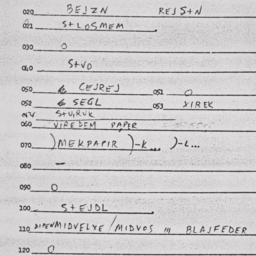 020 BEJZN REJS+N
021 S+LOSMEM
030 O
040 S+VO
050 & CEJREJ 051 O
052 & SEGL 053 XIREK
NV S+URUK
060 VIREDEM PAPER
070 )MEKPAPIR )-K... )-L...
080 —
090 O
100 S+EJDL
110 MIDVELXE/MIDVOS BLAJFEDER
120 O